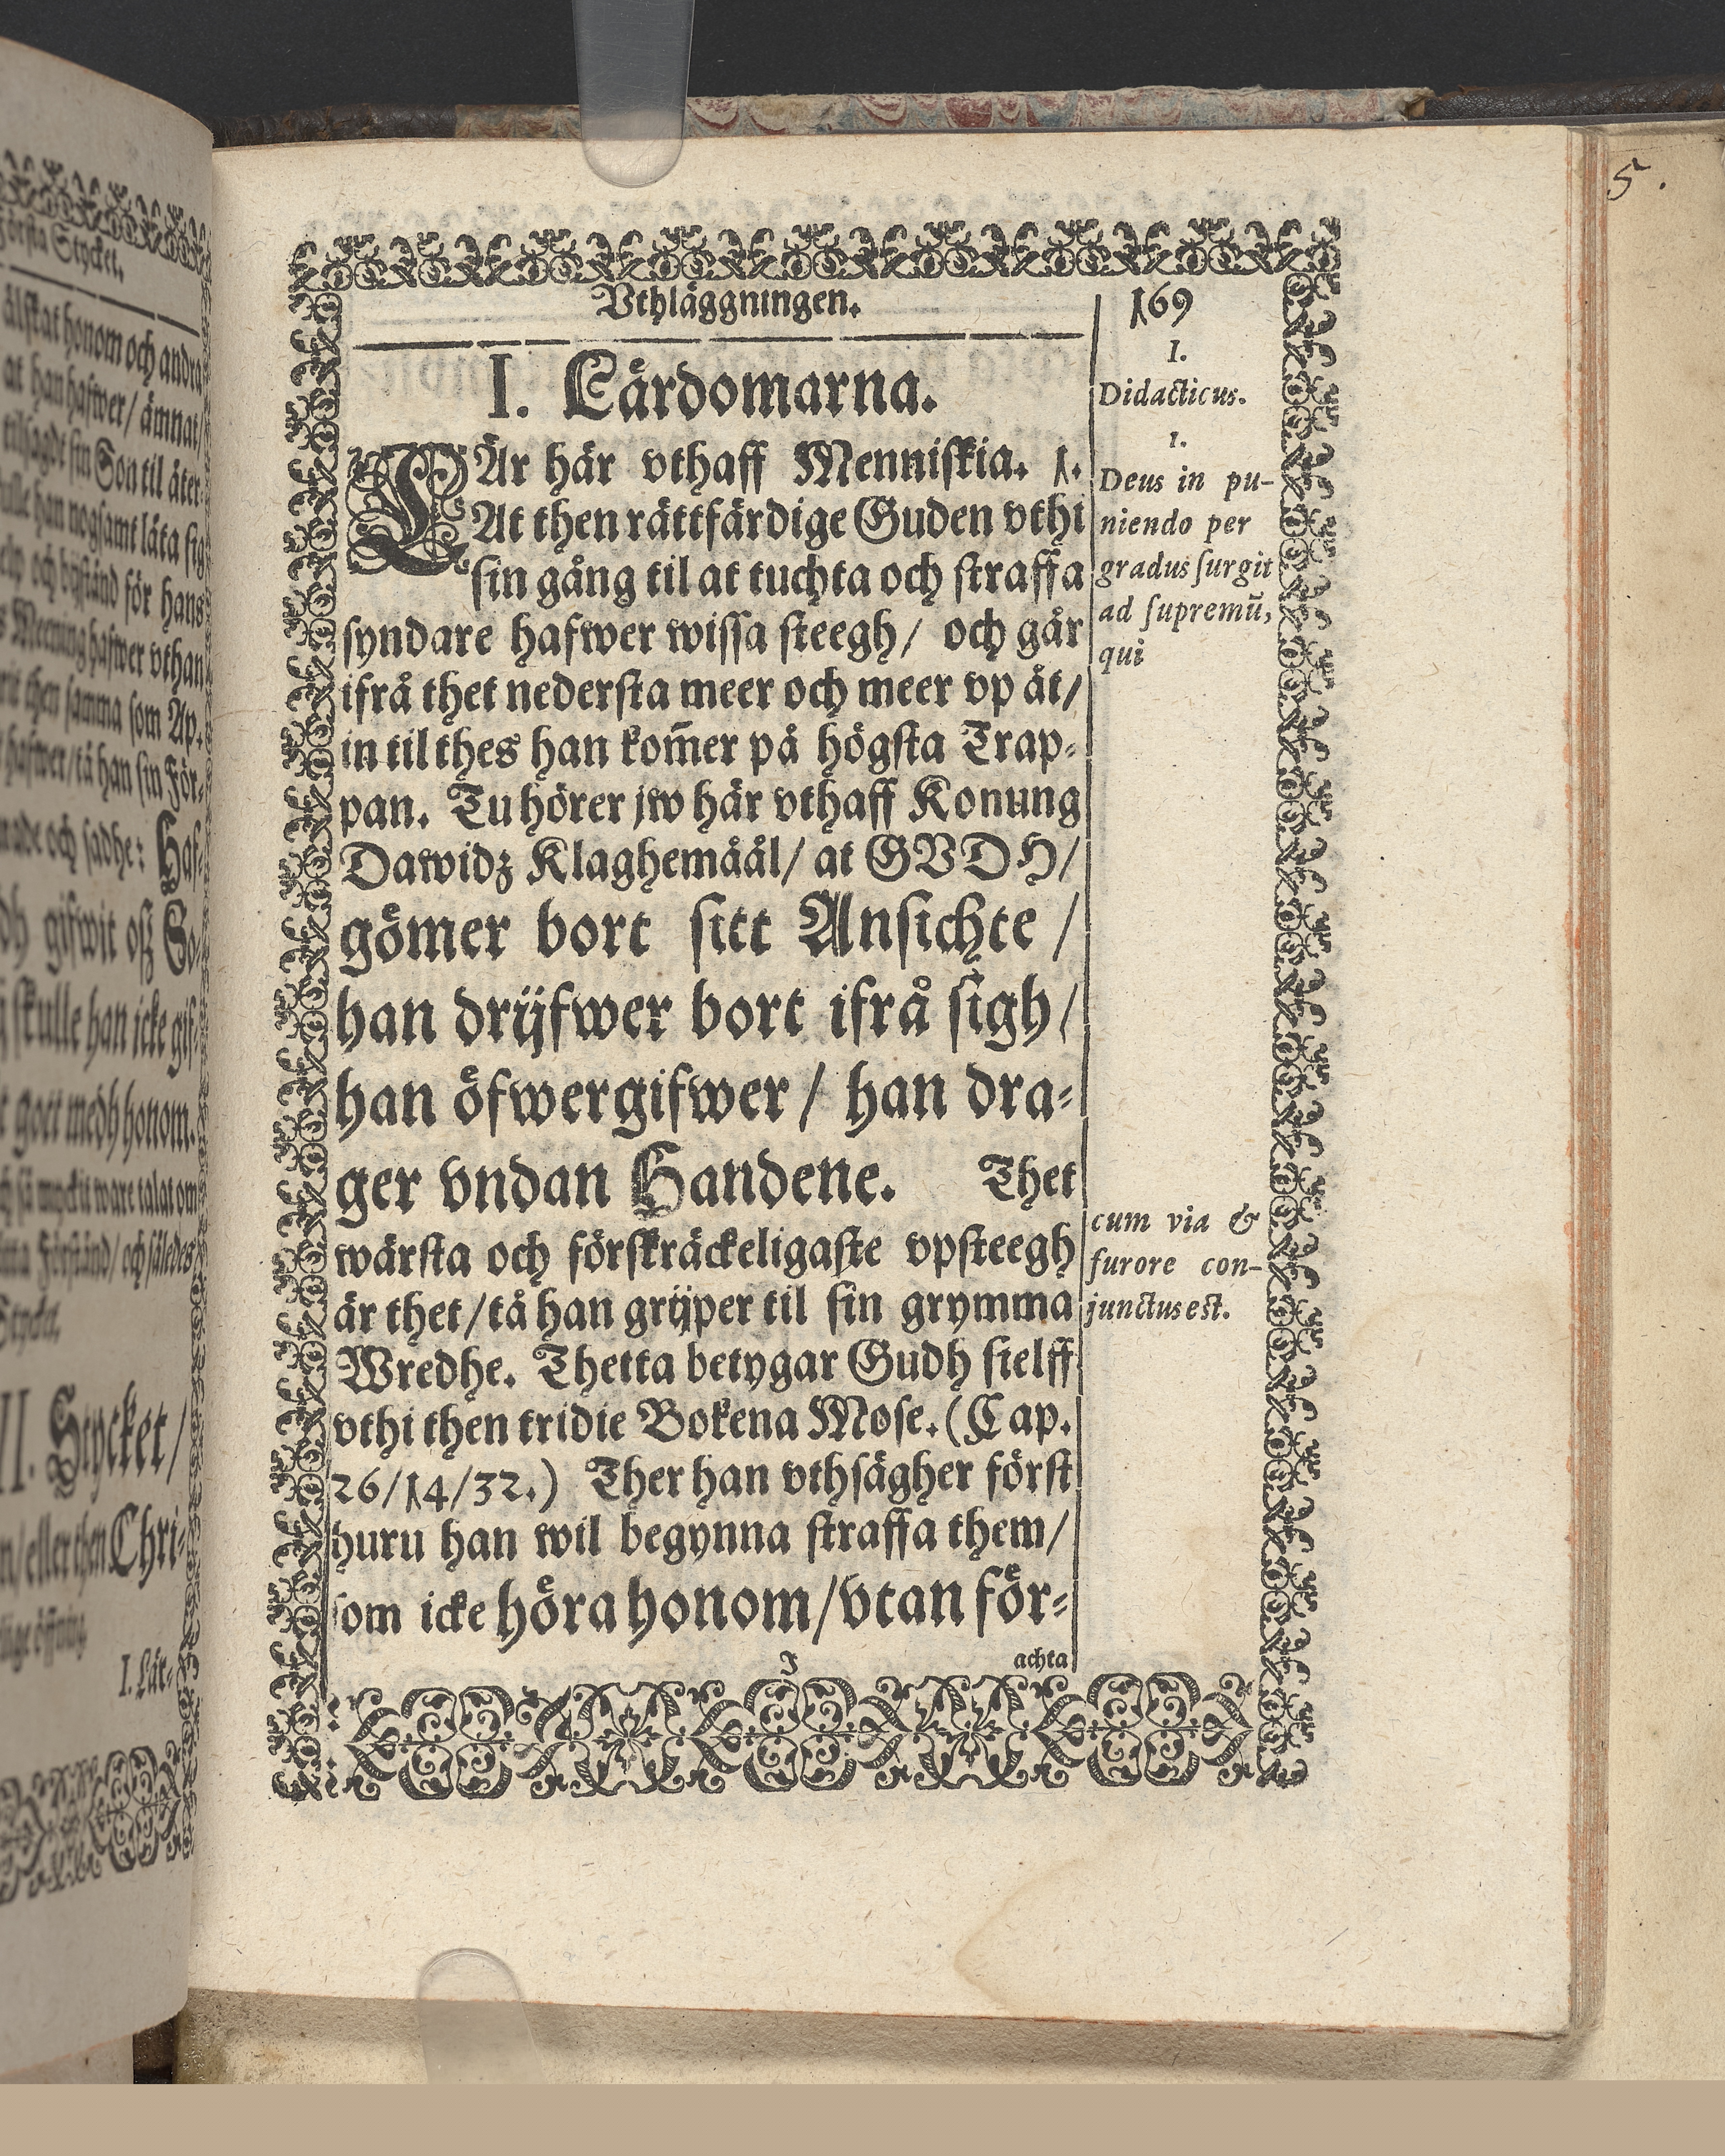 Första Stycket.
älskat honom och andra
at han hafwer/ ämnat/
tilsagdt sin Son til åter-
skulle han nogsamt låta sig
och bijstånd för hans
Meening hafwer vthan
then samma som Ap.
hafwer/ tå han sin För-
och sadhe: Haf-
gifwit oß So-
skulle han icke gif-
gott medh honom.
så myckit ware talat om
Förstånd/ och således
Stycket.
II. Stycket/
eller then Chri-
I. Lär-
Vthläggningen.
169
I. Lärdomarna.
LÄr här vthaff Menniskia. 1.
At then rättfärdige Guden vthi
sin gång til at tuchta och straffa
syndare hafwer wissa steegh/ och går
ifrå thet nedersta meer och meer vp åt/
in til thes han kom̃er på högsta Trap-
pan. Tu hörer jw här vthaff Konung
Dawidz Klaghemåål/ at GVDH/
gömer bort sitt Ansichte /
han drijfwer bort ifrå sigh/
han öfwergifwer / han dra-
ger vndan Handene. Thet
wärsta och förskräckeligaste vpsteegh
är thet/ tå han grijper til sin grymma
Wredhe. Thetta betygar Gudh sielff
vthi then tridie Bokena Mose. (Cap.
26/14/32.) Ther han vthsägher först
huru han wil begynna straffa them/
som icke höra honom/ vtan för-
J
achta
I.
Didacticus.
1.
Deus in pu-
niendo per
gradus surgit
ad supremũ,
qui
cum via &
furore con-
junctus est.
5.